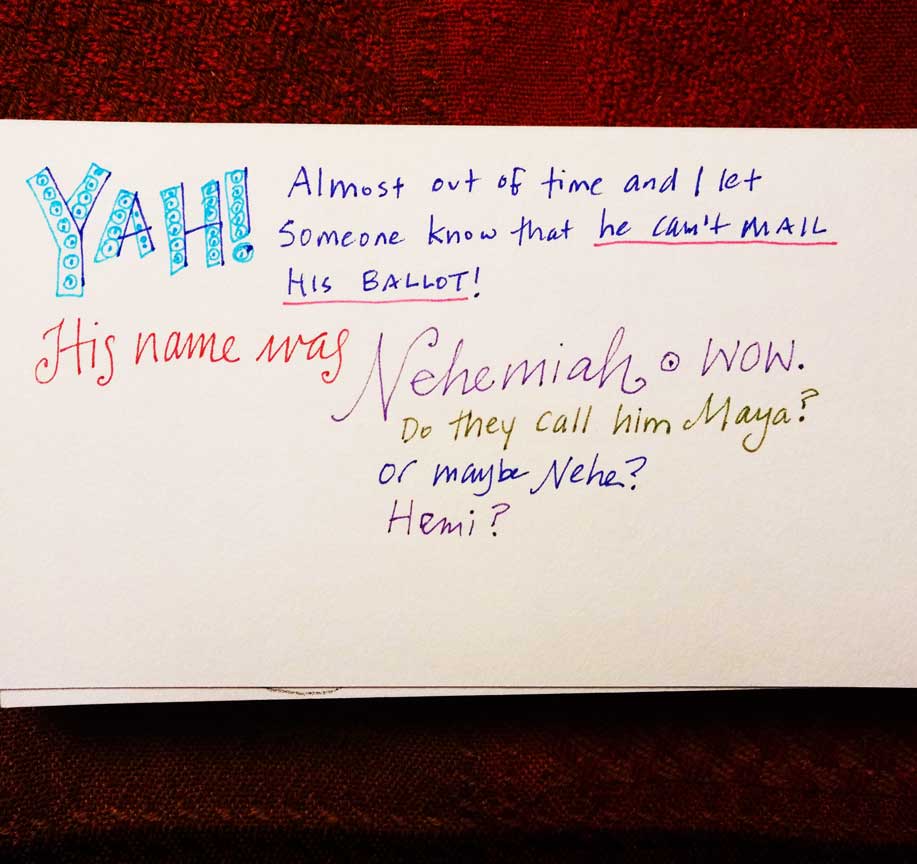 YAH! Almost out of time and I let
someone know that he can't MAIL
HIS BALLOT!
His name was Nehemiah. WOW.
Do they call him Maya?
or maybe Nehe?
Hemi?